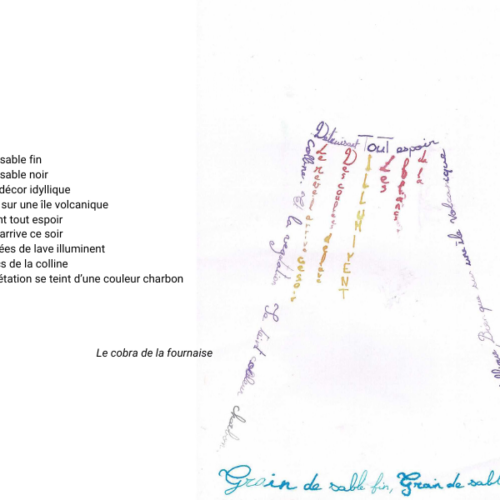 sable fin
sable noir
décor idyllique
sur une île volcanique
nt tout espoir
arrive ce soir
ées de lave illuminent
s de la colline
étation se teint d'une couleur charbon
Le cobra de la fournaise
Détruisant Tout espoir
colline. Et la végétation Se teint couleur charbon.
Le réveil arrive ce soir
Des coulées de lave
ILLUMINENT
Les
de la
volcanique
Grain de sable fin, Grain de sabl